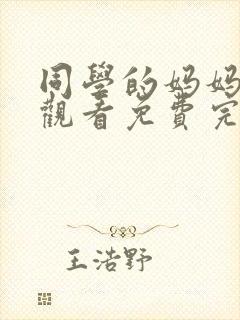 同學的妈妈
觀看免費完
王浩野